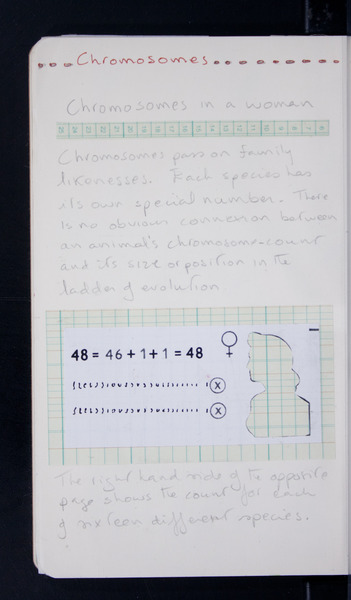 Chromosomes
Chromosomes in a woman
25 24 23 22 21 20 19 18 17 16 15 14 13 12 11 10 9 8 7 6
Chromosomes pass on family
likenesses. Each species has
its own special number. There
is no obvious connexion between
an animal's chromosome-count
and its size or position in the
ladder of evolution
48 = 46 + 1 + 1 = 48 ♀
X
X
The right hand side of the opposite
page shows the count for each
of sixteen different species.